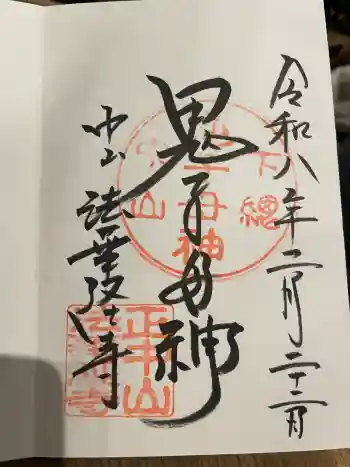 令和八年二月二十二日
鬼子母神
中山 法華経寺
下總
中山
鬼子母神
正中山
法華経寺